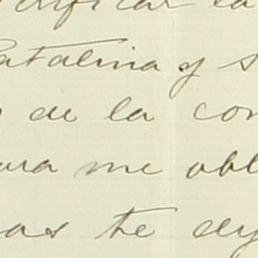 ificar la
Catalina y s
de la con
ura me obl
as the